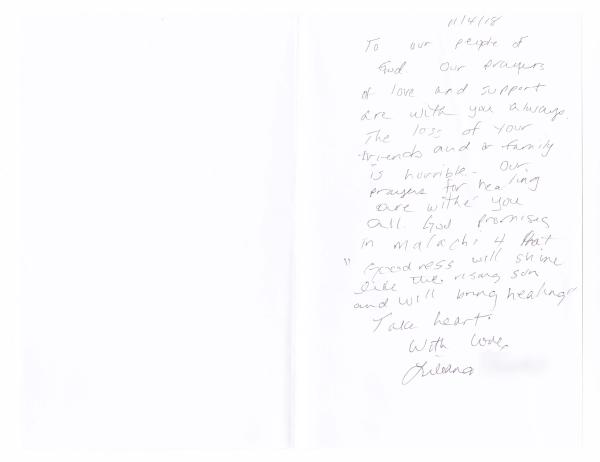 11/4/18
To our people of
God. Our prayers
of love and support
are with you always.
The loss of your
friends and or family
is horrible. Our
prayers for healing
are withe you
all. God promises
in Malachi 4 that
"Goodness will shine
like the rising son
and will bring healing"
Take heart.
With love,
Liliana